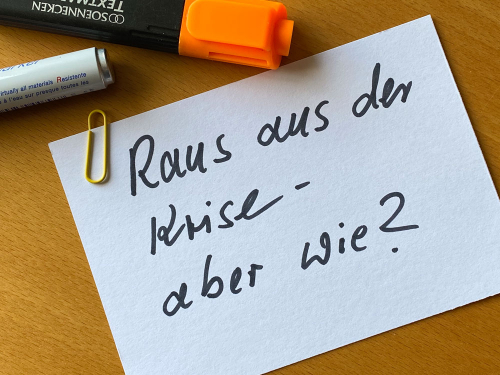 SOENNECKEN
TEXTM
virtually all materials Resistente
à l'eau sur presque toutes les
Raus aus der
Krise-
aber wie?